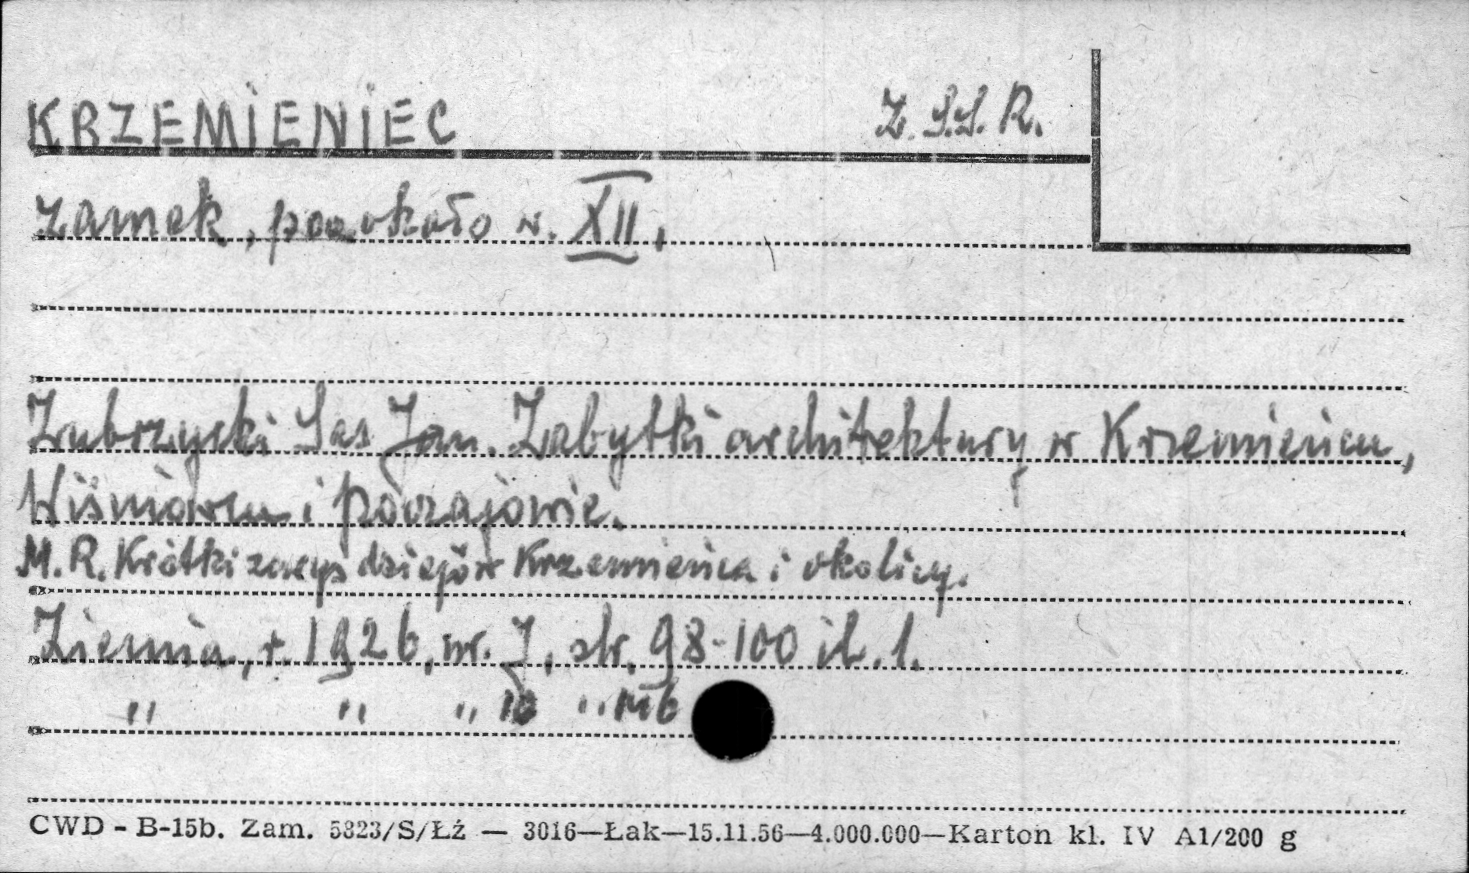 KRZEMIENIEC Z.S.S.R.
zamek, pocz. około w. XII.
Zubrzycki Sas Jan. Zabytki architektury w Krzemieńcu,
Wiśniowcu i Poczajowie.
M.R. Krótki zarys dziejów Krzemieńca i okolicy.
Ziemia, r. 1926, nr. 7, str. 98-100 il. 1.
" " " "
CWD - B-15b. Zam. 5323/S/Łź — 3016—Łak—15.11.56—4.000.000—Karton kl. IV A1/200 g